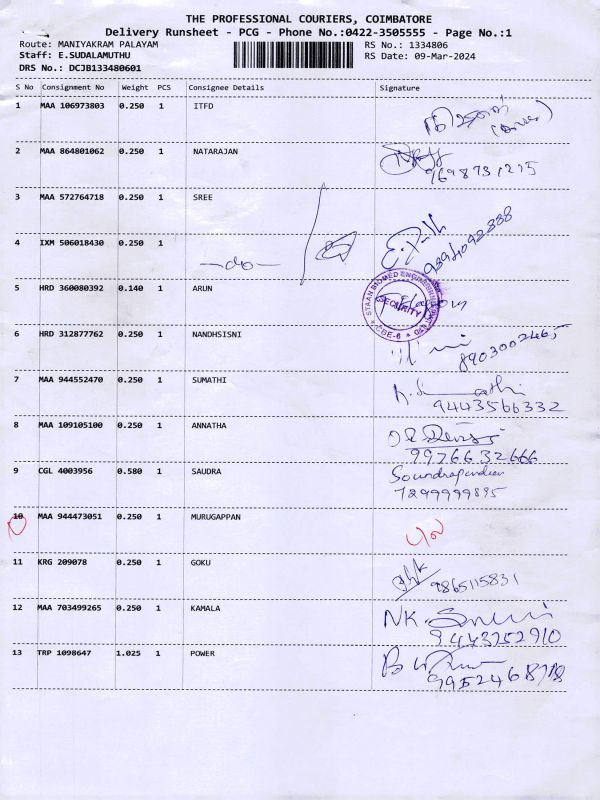 THE PROFESSIONAL COURIERS, COIMBATORE
Delivery Runsheet - PCG - Phone No.:0422-3505555 - Page No.:1
Route: MANIYAKRAM PALAYAM RS No.: 1334806
Staff: E.SUDALAMUTHU RS Date: 09-Mar-2024
DRS No.: DCJB133480601
S No Consignment No Weight PCS Consignee Details Signature
1 MAA 106973803 0.250 1 ITFD
2 MAA 864801062 0.250 1 NATARAJAN
3 MAA 572764718 0.250 1 SREE
4 IXM 506018430 0.250 1 —do—
5 HRD 360080392 0.140 1 ARUN
SECURITY
CBE-6
6 HRD 312877762 0.250 1 NANDHSISNI
7 MAA 944552470 0.250 1 SUMATHI
9443566332
8 MAA 109105100 0.250 1 ANNATHA
9976632666
9 CGL 4003956 0.580 1 SAUDRA Soundrapandian
7299999895
10 MAA 944473051 0.250 1 MURUGAPPAN
11 KRG 209078 0.250 1 GOKU 9865115831
12 MAA 703499265 0.250 1 KAMALA NK.
9443252910
13 TRP 1098647 1.025 1 POWER